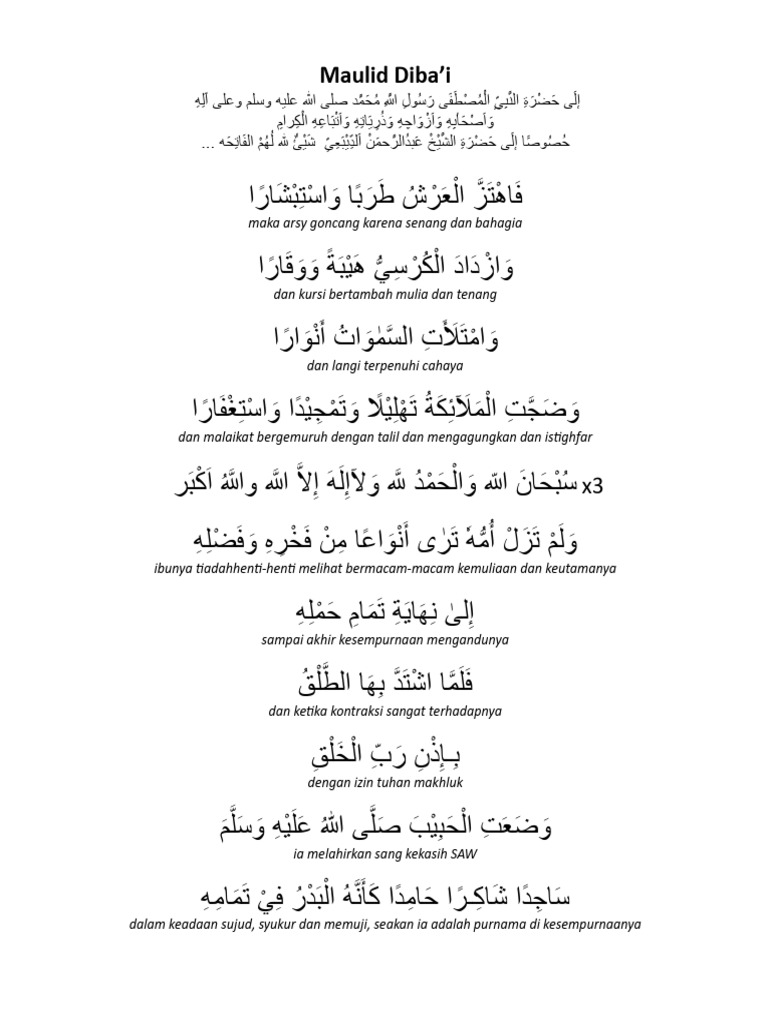 Maulid Diba'i
إِلَى حَضْرَةِ النَّبِيِّ الْمُصْطَفَى رَسُولِ اللهِ مُحَمَّد صلى الله عليه وسلم وعلى آلِهِ
وَأَصْحَابِهِ وَأَزْوَاجِهِ وَذُرِيَاتِهِ وَأَتْبَاعِهِ الْكِرامِ
خُصُوصًا إِلَى حَضْرَةِ الشَّيْخْ عَبْدُالرَّحمَنْ اَلدِّيْبَعِيّ شَيْئٌ لله لَهُمْ الْفَاتِحَه ...
فَاهْتَزَّ الْعَرْشُ طَرَبًا وَاسْتِبْشَارًا
maka arsy goncang karena senang dan bahagia
وَازْدَادَ الْكُرْسِيُّ هَيْبَةً وَوَقَارًا
dan kursi bertambah mulia dan tenang
وَامْتَلَأَتِ السَّمٰوَاتُ أَنْوَارًا
dan langi terpenuhi cahaya
وَضَجَّتِ الْمَلَآئِكَةُ تَهْلِيْلًا وَتَمْجِيْدًا وَاسْتِغْفَارًا
dan malaikat bergemuruh dengan talil dan mengagungkan dan istighfar
سُبْحَانَ اللهِ وَالْحَمْدُ للهِ وَلآإِلَهَ إِلاَّ الله واللهُ اَكْبَر x3
وَلَمْ تَزَلْ أُمُّهٗ تَرٰى أَنْوَاعًا مِنْ فَخْرِهِ وَفَضْلِهِ
ibunya tiadahhenti-henti melihat bermacam-macam kemuliaan dan keutamanya
إِلىٰ نِهَايَةِ تَمَامِ حَمْلِهِ
sampai akhir kesempurnaan mengandunya
فَلَمَّا اشْتَدَّ بِهَا الطَّلْقُ
dan ketika kontraksi sangat terhadapnya
بِـإِذْنِ رَبِّ الْخَلْقِ
dengan izin tuhan makhluk
وَضَعَتِ الْحَبِيْبَ صَلَّى اللهُ عَلَيْهِ وَسَلَّمَ
ia melahirkan sang kekasih SAW
سَاجِدًا شَاكِـرًا حَامِدًا كَأَنَّهُ الْبَدْرُ فِيْ تَمَامِهِ
dalam keadaan sujud, syukur dan memuji, seakan ia adalah purnama di kesempurnaanya